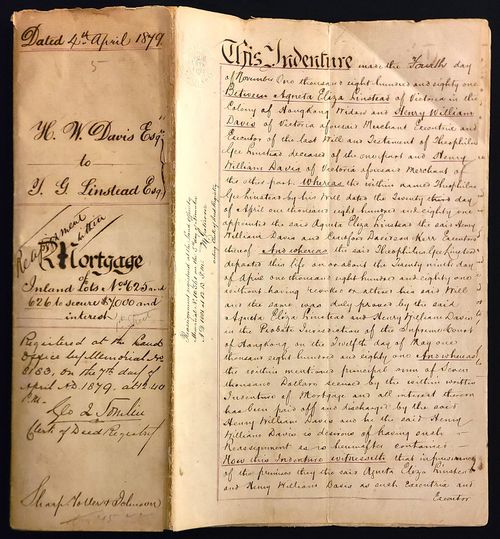 Dated 4th April 1879
H. W. Davis Esqre
to
T. G. Linstead Esq.
Reassignment within
Mortgage
of
Inland Lots Nos 625 and
626 to secure $7000 and
interest
Registered at the Land
Office by Memorial No
on the 7th day of
April A.D. 1879, at
P.M.
Geo
Clerk of Deed Registry
Sharp Toller & Johnson
This Indenture made the Fourth day
of November One thousand eight hundred and eighty one
Between Agneta Eliza Linstead of Victoria in the
Colony of Hongkong Widow and Henry William
Davis of Victoria aforesaid Merchant Executrix and
Executor of the last Will and Testament of Theophilus
Gee Linstead deceased of the one part and Henry
William Davis of Victoria aforesaid Merchant of
the other part. Whereas the within named Theophilus
Gee Linstead by his Will dated the Twenty third day
of April One thousand eight hundred and eighty one
appointed the said Agneta Eliza Linstead the said Henry
William Davis and Davidson Kerr Executors
thereof And whereas the said Theophilus Gee Linstead
departed this life on or about the Twenty ninth day
of April one thousand eight hundred and eighty one
without having revoked or altered his said Will
and the same was duly proved by the said
Agneta Eliza Linstead and Henry William Davis
in the Probate Jurisdiction of the Supreme Court
of Hongkong on the Twelfth day of May One
thousand eight hundred and eighty one And whereas
the within mentioned principal sum of Seven
thousand Dollars secured by the within written
Indenture of Mortgage and all interest thereon
has been paid off and discharged by the said
Henry William Davis and he the said Henry
William Davis is desirous of having such
Reassignment as is hereinafter contained
Now this Indenture witnesseth that in pursuance
of the premises they the said Agneta Eliza Linstead
and Henry William Davis as such Executrix and
Executor